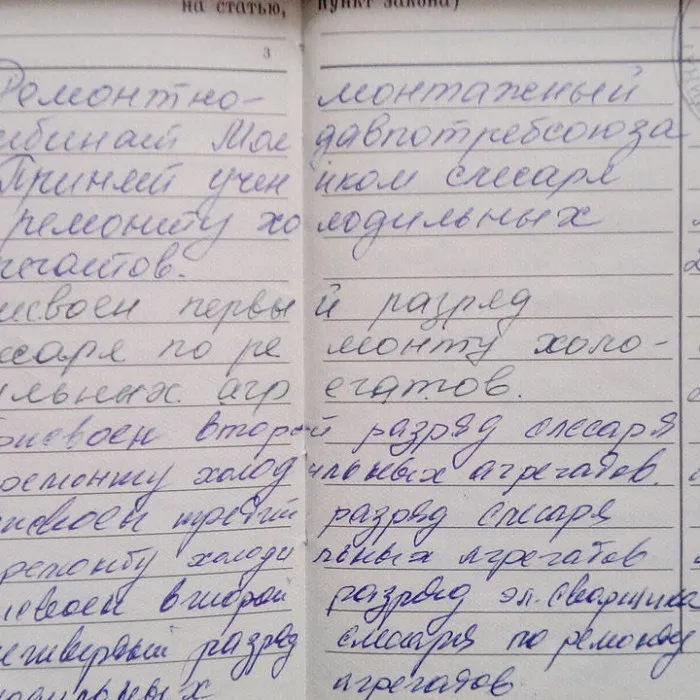 на статью, пункт закона)
3
Ремонтно- монтажный
бинат Мол давпотребсоюза
Принят учен иком слесаря
ремонту хо лодильных
регатов.
исвоен первы й разряд
есаря по ре монту холо-
ильных агр егатов.
рисвоен второй разряд слесаря
ремонту холод ильных агрегатов.
исвоен третий разряд слесаря
ремонту холоди льных агрегатов
исвоен второй разряд эл. сварщика
четвертый разряд слесаря по ремонту
лодильных агрегатов